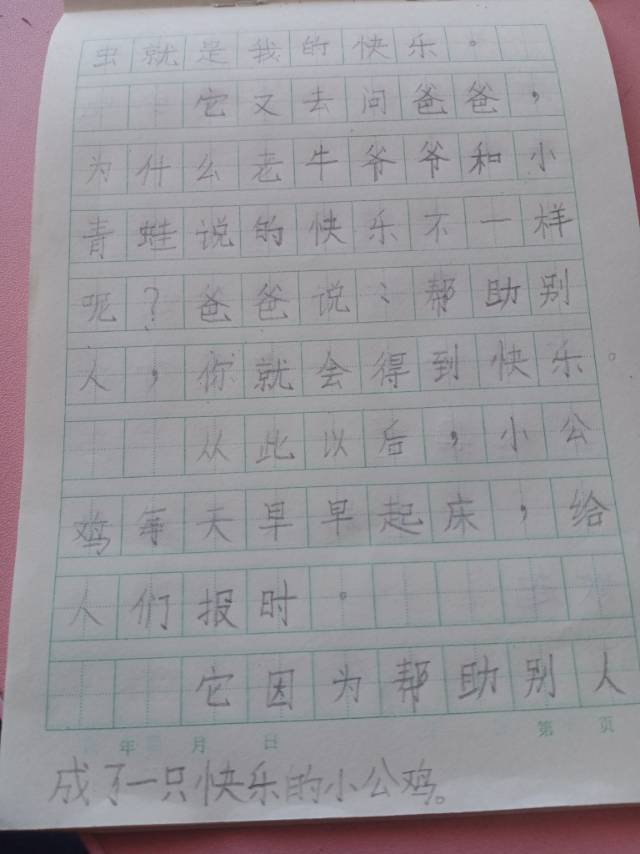 虫就是我的快乐。
它又去问爸爸，
为什么老牛爷爷和小
青蛙说的快乐不一样
呢？爸爸说：帮助别
人，你就会得到快乐。
从此以后，小公
鸡每天早早起床，给
人们报时。
它因为帮助别人
年 月 日 第 页
成了一只快乐的小公鸡。